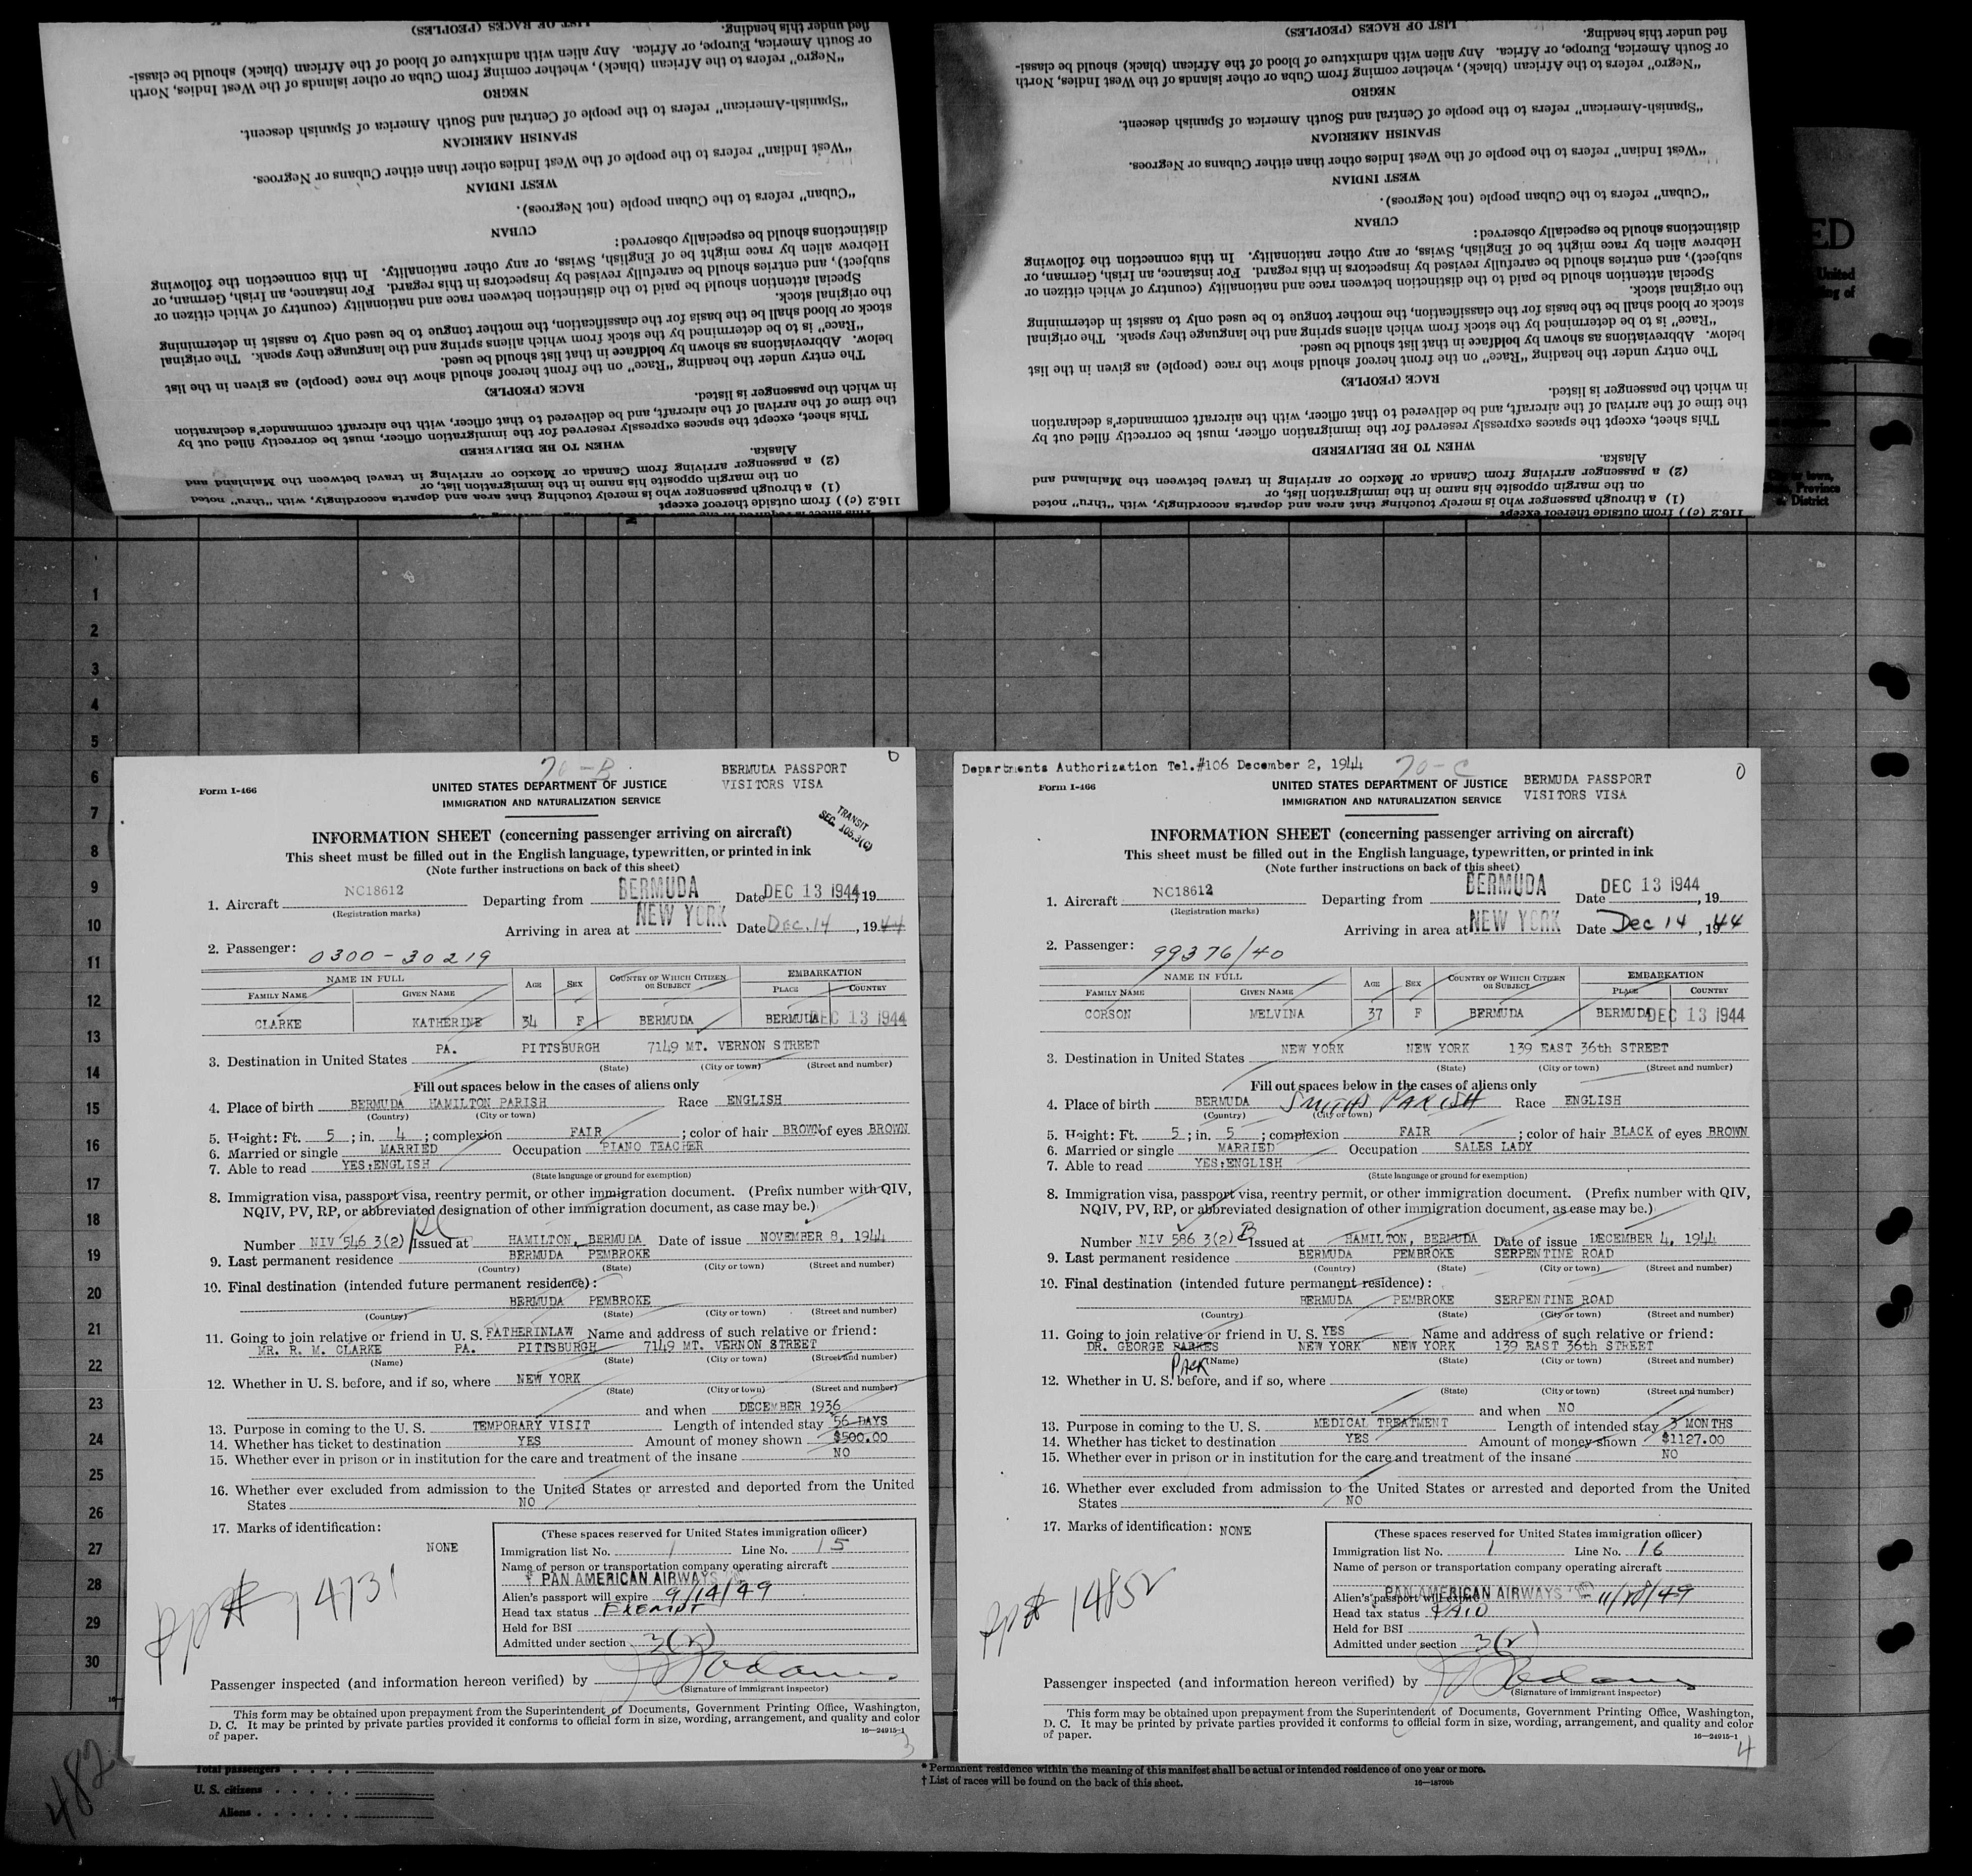 LIST OF RACES (PEOPLES)
fied under this heading.
or South America, Europe, or Africa. Any alien with admixture of blood of the African (black) should be classi-
"Negro" refers to the African (black), whether coming from Cuba or other islands of the West Indies, North
NEGRO
"Spanish-American" refers to the people of Central and South America of Spanish descent.
SPANISH AMERICAN
"West Indian" refers to the people of the West Indies other than either Cubans or Negroes.
WEST INDIAN
"Cuban" refers to the Cuban people (not Negroes).
CUBAN
distinctions should be especially observed:
Hebrew alien by race might be of English, Swiss, or any other nationality. In this connection the following
subject), and entries should be carefully revised by inspectors in this regard. For instance, an Irish, German, or
Special attention should be paid to the distinction between race and nationality (country of which citizen or
the original stock.
stock or blood shall be the basis for the classification, the mother tongue to be used only to assist in determining
"Race" is to be determined by the stock from which aliens spring and the language they speak. The original
below. Abbreviations as shown by boldface in that list should be used.
The entry under the heading "Race" on the front hereof should show the race (people) as given in the list
RACE (PEOPLE)
in which the passenger is listed.
the time of the arrival of the aircraft, and be delivered to that officer, with the aircraft commander's declaration
This sheet, except the spaces expressly reserved for the immigration officer, must be correctly filled out by
WHEN TO BE DELIVERED
Alaska.
(2) a passenger arriving from Canada or Mexico or arriving in travel between the Mainland and
on the margin opposite his name in the immigration list, or
(1) a through passenger who is merely touching that area and departs accordingly, with "thru" noted
116.2 (c) ) from outside thereof except
LIST OF RACES (PEOPLES)
fied under this heading.
or South America, Europe, or Africa. Any alien with admixture of blood of the African (black) should be classi-
"Negro" refers to the African (black), whether coming from Cuba or other islands of the West Indies, North
NEGRO
"Spanish-American" refers to the people of Central and South America of Spanish descent.
SPANISH AMERICAN
"West Indian" refers to the people of the West Indies other than either Cubans or Negroes.
WEST INDIAN
"Cuban" refers to the Cuban people (not Negroes).
CUBAN
distinctions should be especially observed:
Hebrew alien by race might be of English, Swiss, or any other nationality. In this connection the following
subject), and entries should be carefully revised by inspectors in this regard. For instance, an Irish, German, or
Special attention should be paid to the distinction between race and nationality (country of which citizen or
the original stock.
stock or blood shall be the basis for the classification, the mother tongue to be used only to assist in determining
"Race" is to be determined by the stock from which aliens spring and the language they speak. The original
below. Abbreviations as shown by boldface in that list should be used.
The entry under the heading "Race" on the front hereof should show the race (people) as given in the list
RACE (PEOPLE)
in which the passenger is listed.
the time of the arrival of the aircraft, and be delivered to that officer, with the aircraft commander's declaration
This sheet, except the spaces expressly reserved for the immigration officer, must be correctly filled out by
WHEN TO BE DELIVERED
Alaska.
(2) a passenger arriving from Canada or Mexico or arriving in travel between the Mainland and
on the margin opposite his name in the immigration list, or
(1) a through passenger who is merely touching that area and departs accordingly, with "thru" noted
116.2 (c) ) from outside thereof except
ED
United
ng of
or town,
Province
District
1
2
3
4
5
6
7
8
9
10
11
12
13
14
15
16
17
18
19
20
21
22
23
24
25
26
27
28
29
30
70-B
0
BERMUDA PASSPORT
VISITORS VISA
Form I-466
UNITED STATES DEPARTMENT OF JUSTICE
IMMIGRATION AND NATURALIZATION SERVICE
TRANSIT
SEC. 105.3(C)
INFORMATION SHEET (concerning passenger arriving on aircraft)
This sheet must be filled out in the English language, typewritten, or printed in ink
(Note further instructions on back of this sheet)
1. Aircraft NC18612 Departing from BERMUDA Date DEC 13 1944, 19
(Registration marks)
Arriving in area at NEW YORK Date Dec. 14, 1944
2. Passenger: 0300-30219
NAME IN FULL AGE SEX COUNTRY OF WHICH CITIZEN OR SUBJECT EMBARKATION
FAMILY NAME GIVEN NAME PLACE COUNTRY
CLARKE KATHERINE 34 F BERMUDA BERMUDA DEC 13 1944
3. Destination in United States PA. PITTSBURGH 7149 MT. VERNON STREET
(State) (City or town) (Street and number)
Fill out spaces below in the cases of aliens only
4. Place of birth BERMUDA HAMILTON PARISH Race ENGLISH
(Country) (City or town)
5. Height: Ft. 5; in. 4; complexion FAIR; color of hair BROWN of eyes BROWN
6. Married or single MARRIED Occupation PIANO TEACHER
7. Able to read YES:ENGLISH
(State language or ground for exemption)
8. Immigration visa, passport visa, reentry permit, or other immigration document. (Prefix number with QIV,
NQIV, PV, RP, or abbreviated designation of other immigration document, as case may be.)
Number NIV 546 3(2) Issued at HAMILTON, BERMUDA Date of issue NOVEMBER 8, 1944
9. Last permanent residence BERMUDA PEMBROKE
(Country) (State) (City or town) (Street and number)
10. Final destination (intended future permanent residence):
BERMUDA PEMBROKE
(Country) (State) (City or town) (Street and number)
11. Going to join relative or friend in U. S. FATHERINLAW Name and address of such relative or friend:
MR. R. M. CLARKE PA. PITTSBURGH 7149 MT. VERNON STREET
(Name) (State) (City or town) (Street and number)
12. Whether in U. S. before, and if so, where NEW YORK
(State) (City or town) (Street and number)
and when DECEMBER 1936
13. Purpose in coming to the U. S. TEMPORARY VISIT Length of intended stay 56 DAYS
14. Whether has ticket to destination YES Amount of money shown $500.00
15. Whether ever in prison or in institution for the care and treatment of the insane NO
16. Whether ever excluded from admission to the United States or arrested and deported from the United
States NO
17. Marks of identification:
NONE
pp# 14731
(These spaces reserved for United States immigration officer)
Immigration list No. 1 Line No. 15
Name of person or transportation company operating aircraft
PAN AMERICAN AIRWAYS
Alien's passport will expire 9/14/49
Head tax status EXEMPT
Held for BSI
Admitted under section 3(2)
Passenger inspected (and information hereon verified) by
(Signature of Immigrant Inspector)
This form may be obtained upon prepayment from the Superintendent of Documents, Government Printing Office, Washington,
D. C. It may be printed by private parties provided it conforms to official form in size, wording, arrangement, and quality and color
of paper.
16—24915-1
3
Departments Authorization Tel.#106 December 2, 1944
70-C
0
BERMUDA PASSPORT
VISITORS VISA
Form I-466
UNITED STATES DEPARTMENT OF JUSTICE
IMMIGRATION AND NATURALIZATION SERVICE
INFORMATION SHEET (concerning passenger arriving on aircraft)
This sheet must be filled out in the English language, typewritten, or printed in ink
(Note further instructions on back of this sheet)
1. Aircraft NC18612 Departing from BERMUDA Date DEC 13 1944, 19
(Registration marks)
Arriving in area at NEW YORK Date Dec 14, 1944
2. Passenger: 99376/40
NAME IN FULL AGE SEX COUNTRY OF WHICH CITIZEN OR SUBJECT EMBARKATION
FAMILY NAME GIVEN NAME PLACE COUNTRY
CORSON MELVINA 37 F BERMUDA BERMUDA DEC 13 1944
3. Destination in United States NEW YORK NEW YORK 139 EAST 36th STREET
(State) (City or town) (Street and number)
Fill out spaces below in the cases of aliens only
4. Place of birth BERMUDA SMITHS PARISH Race ENGLISH
(Country) (City or town)
5. Height: Ft. 5; in. 5; complexion FAIR; color of hair BLACK of eyes BROWN
6. Married or single MARRIED Occupation SALES LADY
7. Able to read YES:ENGLISH
(State language or ground for exemption)
8. Immigration visa, passport visa, reentry permit, or other immigration document. (Prefix number with QIV,
NQIV, PV, RP, or abbreviated designation of other immigration document, as case may be.)
Number NIV 586 3(2) B Issued at HAMILTON, BERMUDA Date of issue DECEMBER 4, 1944
9. Last permanent residence BERMUDA PEMBROKE SERPENTINE ROAD
(Country) (State) (City or town) (Street and number)
10. Final destination (intended future permanent residence):
BERMUDA PEMBROKE SERPENTINE ROAD
(Country) (State) (City or town) (Street and number)
11. Going to join relative or friend in U. S. YES Name and address of such relative or friend:
DR. GEORGE PARKES NEW YORK NEW YORK 139 EAST 36th STREET
PACK (Name) (State) (City or town) (Street and number)
12. Whether in U. S. before, and if so, where
(State) (City or town) (Street and number)
and when NO
13. Purpose in coming to the U. S. MEDICAL TREATMENT Length of intended stay 3 MONTHS
14. Whether has ticket to destination YES Amount of money shown $1127.00
15. Whether ever in prison or in institution for the care and treatment of the insane NO
16. Whether ever excluded from admission to the United States or arrested and deported from the United
States NO
17. Marks of identification: NONE
pp# 14852
(These spaces reserved for United States immigration officer)
Immigration list No. 1 Line No. 16
Name of person or transportation company operating aircraft
PAN AMERICAN AIRWAYS
Alien's passport will expire 11/18/49
Head tax status PAID
Held for BSI
Admitted under section 3(2)
Passenger inspected (and information hereon verified) by
(Signature of Immigrant Inspector)
This form may be obtained upon prepayment from the Superintendent of Documents, Government Printing Office, Washington,
D. C. It may be printed by private parties provided it conforms to official form in size, wording, arrangement, and quality and color
of paper.
16—24915-1
4
482
Total passengers
U. S. citizens
Aliens
* Permanent residence within the meaning of this manifest shall be actual or intended residence of one year or more.
† List of races will be found on the back of this sheet.
16—18700b